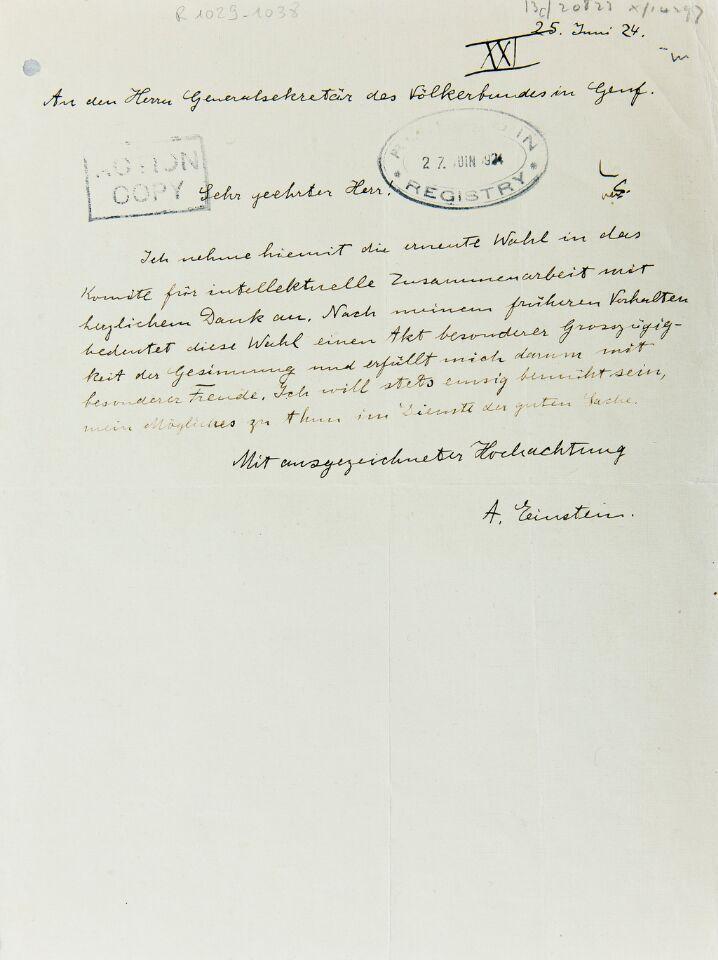 R 1029-1038
13c/20823 x/14297
25. Juni 24.
XXI
An den Herrn Generalsekretär des Völkerbundes in Genf.
ACTION
COPY
IN
27 JUIN 1924
REGISTRY
Sehr geehrter Herr.
Ich nehme hiemit die erneute Wahl in das
Komité für intellektuelle Zusammenarbeit mit
herzlichem Dank an. Nach meinem früheren Verhalten
bedeutet diese Wahl einen Akt besonderer Groszügig-
keit der Gesinnung und erfüllt mich darum mit
besonderer Freude. Ich will stets emsig bemüht sein,
mein Mögliches zu thun im Dienste der guten Sache.
Mit ausgezeichneter Hochachtung
A. Einstein.